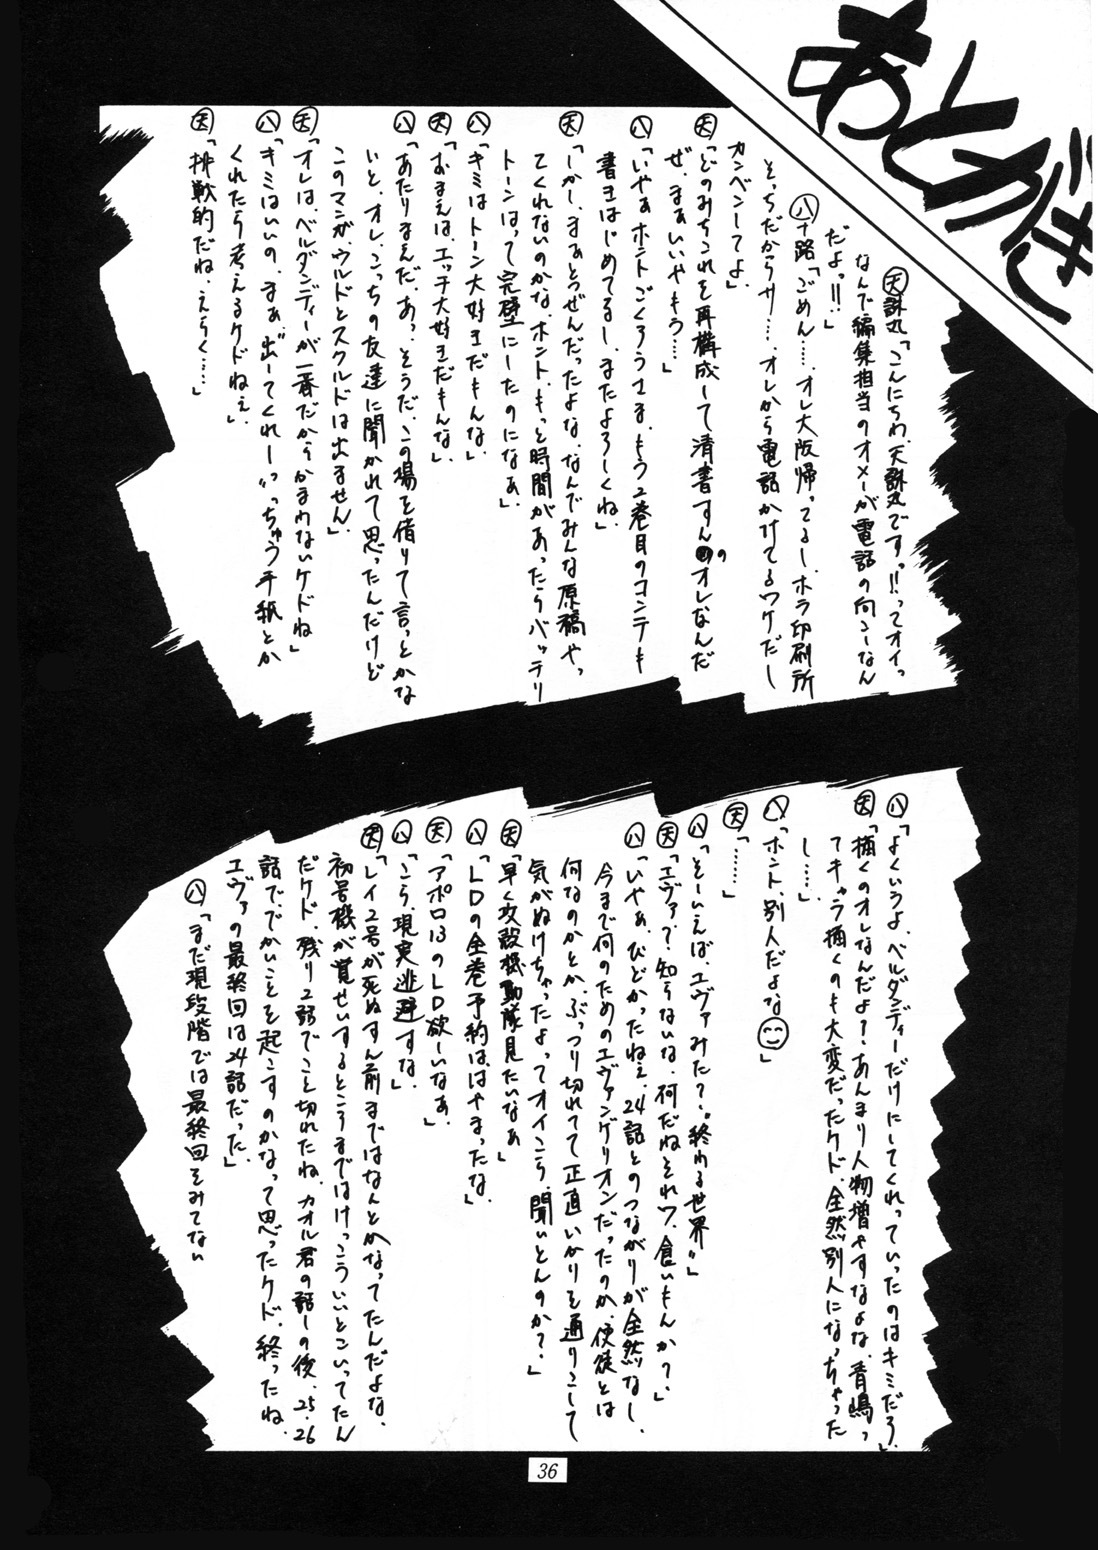 あとがき
天誅丸「こんにちわ、天誅丸ですっ!!ってオイっ
なんで編集担当のオメーが電話の向こーなん
だよっ!!」
八十路「ごめん……、オレ大阪帰ってるし、ホラ印刷所
そっちだからサ……、オレから電話かけてるワケだし
カンベンしてよ」
天「どのみちこれを再構成して清書すんのオレなんだ
ぜ、まぁいいやもう……」
八「いやぁホントごくろうさま、もう2巻目のコンテも
書きはじめてるし、またよろしくね」
天「しかし、まぁとうぜんだったよな、なんでみんな原稿やっ
てくれないのかな、ホント、もっと時間があったらバッチリ
トーンはって完璧にしたのになぁ」
八「キミはトーン大好きだもんな」
天「おまえは、エッチ大好きだもんな」
八「あたりまえだ、あっ、そうだ、この場を借りて言っとかな
いと、オレ、こっちの友達に聞かれて思ったんだけど
このマンガ、ウルドとスクルドは出ません」
天「オレは、ベルダンディーが一番だからかまわないケドね」
八「キミはいいの、まぁ"出ーてくれー"っちゅう手紙とか
くれたら考えるケドねぇ」
天「挑戦的だね、えらく……」
八「よくいうよ、ベルダンディーだけにしてくれっていったのはキミだろ」
天「描くのオレなんだよ？あんまり人物増やすなよな、青嶋っ
てキャラ描くのも大変だったケド、全然別人になっちゃった
し……」
八「ホント、別人だよな」
天「……」
八「そーいえば、エヴァみた？"終わる世界"」
天「エヴァ？知らないな、何だねそれワ、食いもんか？」
八「いやぁ、ひどかったねぇ、24話とのつながりが全然なし、
今まで何のためのエヴァンゲリオンだったのか、使徒とは
何なのかとか、ぶっつり切れてて正直いかりを通りこして
気がぬけちゃったよってオイこら、聞いとんのか？」
天「早く攻殻機動隊見たいなぁ」
八「LDの全巻予約は、はやまったな」
天「アポロ13のLD欲しいなぁ」
八「こら、現実逃避すな」
天「レイ2号が死ぬすん前まではなんとかなってたんだよな、
初号機が覚せいするところまではけっこういいとこいってたん
だケド、残り2話でこと切れたね、カオル君の話しの後、25、26
話で、でかいことを起こすのかなって思ったケド、終ったね、
エヴァの最終回は24話だった」
八「まだ現段階では最終回をみてない
36